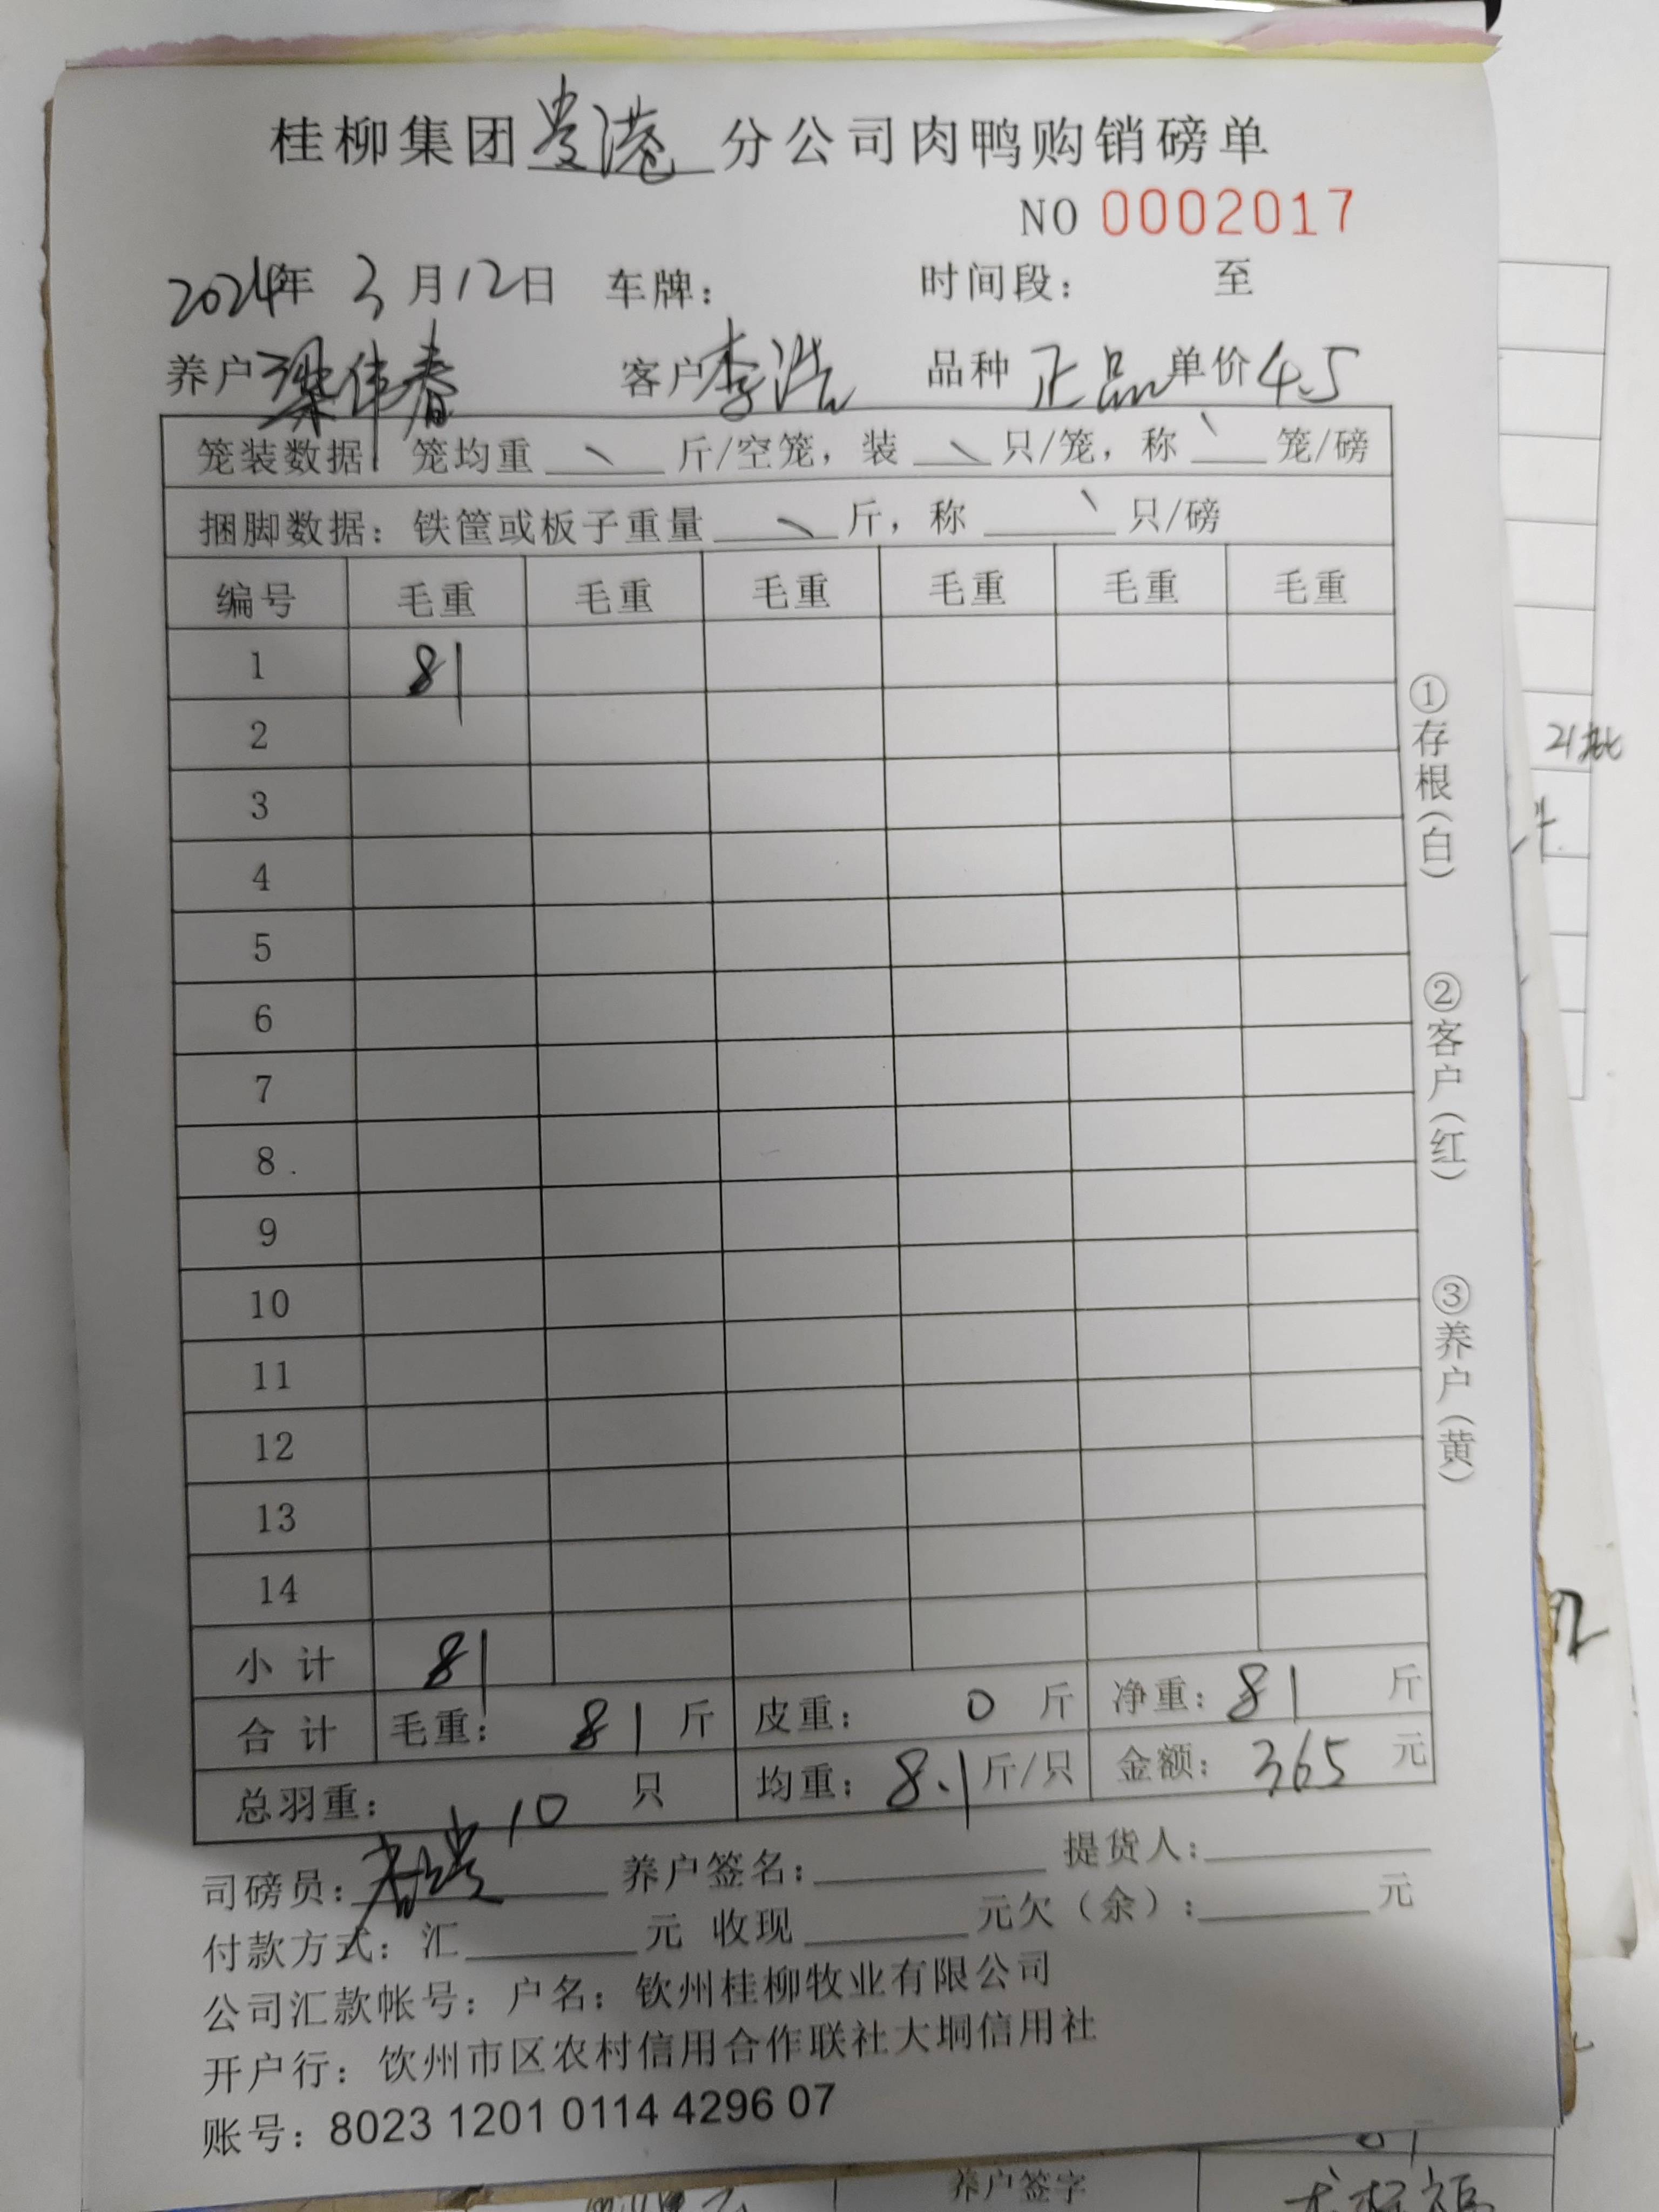 桂柳集团贵港分公司肉鸭购销磅单
NO 0002017
2024年 3月12日 车牌: 时间段: 至
养户梁伟春 客户李浩 品种 正品 单价4.5
笼装数据: 笼均重 斤/空笼, 装 只/笼, 称 笼/磅
捆脚数据: 铁筐或板子重量 斤, 称 只/磅
编号 毛重 毛重 毛重 毛重 毛重 毛重
1 81
2
3
4
5
6
7
8
9
10
11
12
13
14
小计 81
合计 毛重: 81 斤 皮重: 0 斤 净重: 81 斤
总羽重: 10 只 均重: 8.1 斤/只 金额: 365 元
司磅员: 养户签名: 提货人:
付款方式: 汇 元 收现 元欠(余): 元
公司汇款帐号: 户名: 钦州桂柳牧业有限公司
开户行: 饮州市区农村信用合作联社大垌信用社
账号: 8023 1201 0114 4296 07
①存根(白)
②客户(红)
③养户(黄)
21批
养户签字